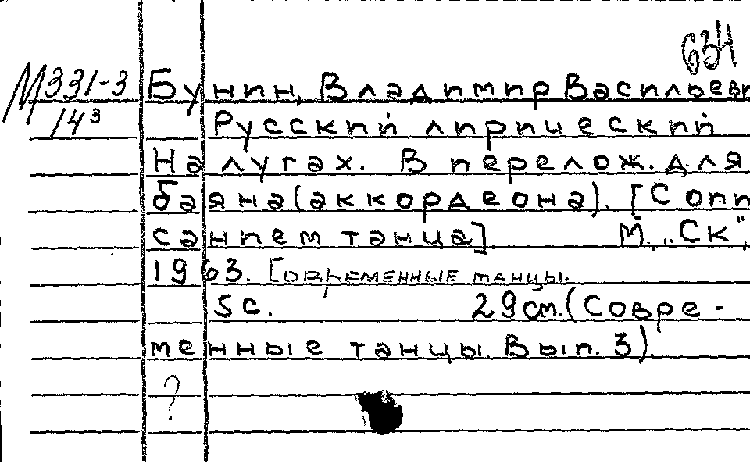 631
М331-3 Бунин, Владимир Василеви
14³ Русский лирический
На лугах. В перелож. для
баяна (аккордеона). [С опи
санием танца]. М., „Ск",
1963. [Современные танцы.
5 с. 29 см. (Совре-
менные танцы. Вып. 3).
?